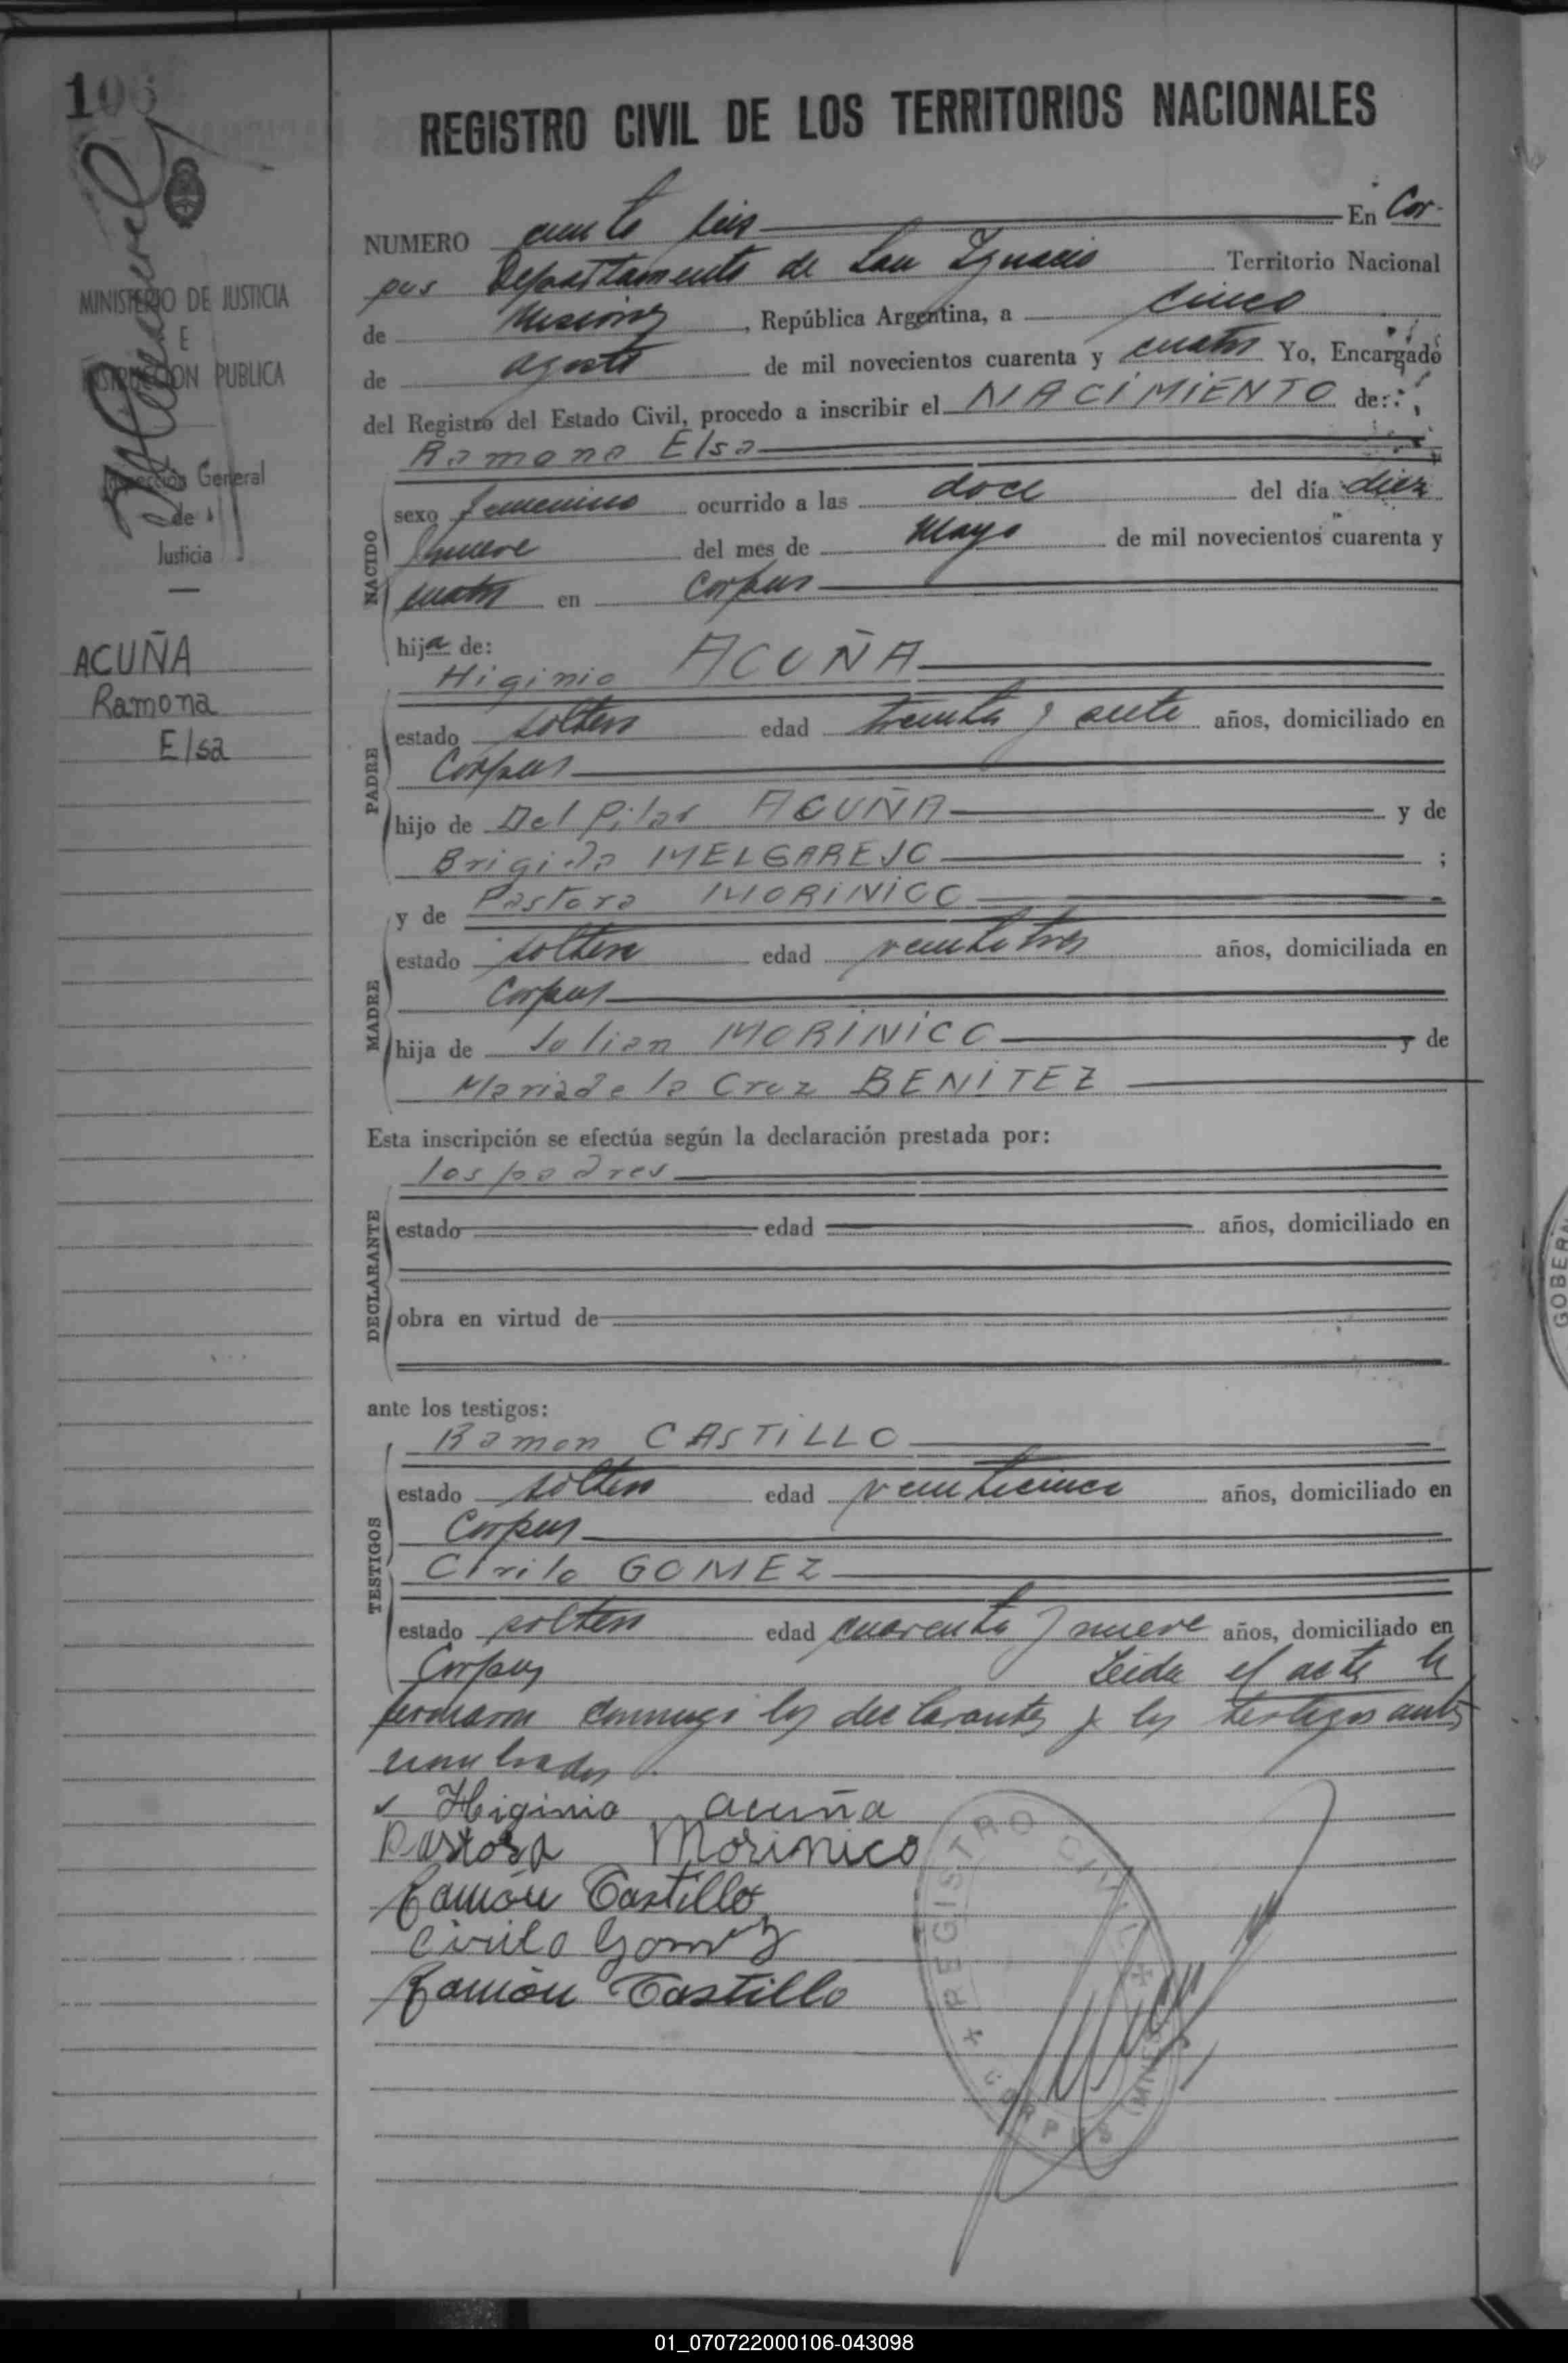 106
MINISTERIO DE JUSTICIA
E
INSTRUCCION PUBLICA
Inspección General
de
Justicia
ACUÑA
Ramona
Elsa
REGISTRO CIVIL DE LOS TERRITORIOS NACIONALES
NUMERO ciento seis En Cor-
pus Departamento de San Ignacio Territorio Nacional
de Misiones, República Argentina, a cinco
de agosto de mil novecientos cuarenta y cuatro Yo, Encargado
del Registro del Estado Civil, procedo a inscribir el NACIMIENTO de:
Ramona Elsa
NACIDO
sexo femenino ocurrido a las doce del día diez
y nueve del mes de Mayo de mil novecientos cuarenta y
cuatro en Corpus
hija de:
Higinio ACUÑA
PADRE
estado soltero edad treinta y siete años, domiciliado en
Corpus
hijo de Del Pilar ACUÑA y de
Brigida MELGAREJO ;
y de Pastora MORINICO
MADRE
estado soltera edad veintitres años, domiciliada en
Corpus
hija de Julian MORINICO y de
Maria de la Cruz BENITEZ
Esta inscripción se efectúa según la declaración prestada por:
los padres
DECLARANTE
estado edad años, domiciliado en
obra en virtud de
ante los testigos:
Ramon CASTILLO
TESTIGOS
estado soltero edad veinticinco años, domiciliado en
Corpus
Cirilo GOMEZ
estado soltero edad cuarenta y nueve años, domiciliado en
Corpus Leida el acta la
firmaron conmigo los declarantes y los testigos antes
nombrados.
Higinio acuña
Pastora Morinico
Ramón Castillo
Cirilo Gomez
Ramón Castillo
REGISTRO CIVIL
CORPUS (MNES.)
GOBERN
01_070722000106-043098